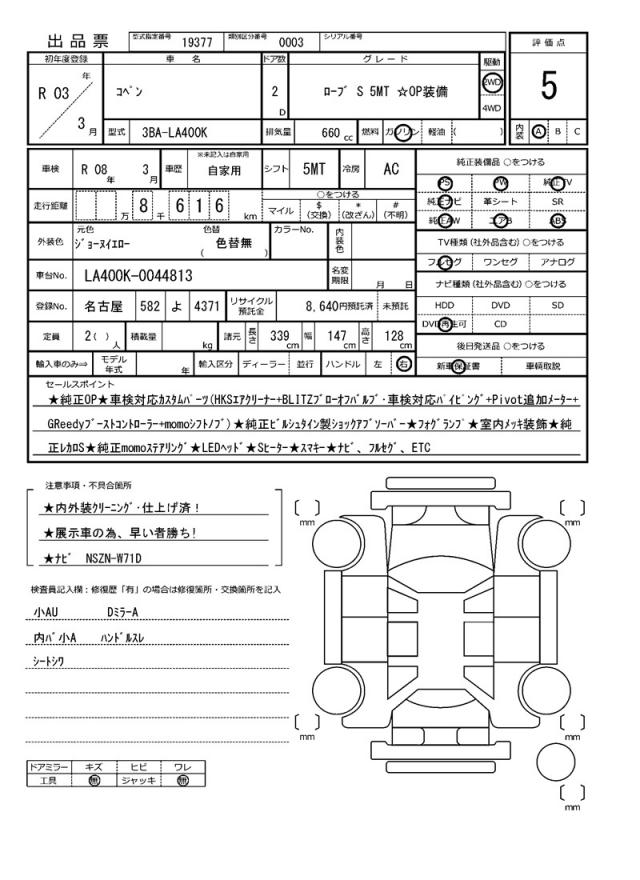 出品票 型式指定番号 19377 類別区分番号 0003 シリアル番号
評価点
5
初年度登録 車名 ドア数 グレード 駆動
R 03 年 3 月 コペン 2 D ローブ S 5MT ☆OP装備 2WD 4WD
型式 3BA-LA400K 排気量 660 cc 燃料 ガソリン 軽油 ( ) 内装 A B C
車検 R 08 年 3 月 車歴 ※未記入は自家用 自家用 シフト 5MT 冷房 AC
走行距離 万 8 千 6 1 6 km ○をつける マイル $ (交換) * (改ざん) # (不明)
外装色 元色 ジョーヌイエロー 色替 ( 色替無 ) カラーNo. 内装色
車台No. LA400K-0044813 名変期限 月 日
登録No. 名古屋 582 よ 4371 リサイクル預託金 8,640円預託済 未預託
定員 2( ) 人 積載量 kg 諸元 長さ 339 cm 幅 147 cm 高さ 128 cm
輸入車のみ⇒ モデル年式 年 輸入区分 ディーラー ・ 並行 ハンドル 左 ・ 右
純正装備品 ○をつける
PS PW 純正TV
純正ナビ 革シート SR
純正AW エアB ABS
TV種類 (社外品含む) ○をつける
フルセグ ワンセグ アナログ
ナビ種類 (社外品含む) ○をつける
HDD DVD SD
DVD再生可 CD
後日発送品 ○をつける
新車保証書 車輌取説
セールスポイント
★純正OP★車検対応カスタムパーツ(HKSエアクリーナー+BLITZブローオフバルブ・車検対応パイピング+Pivot追加メーター+
GReedyブーストコントローラー+momoシフトノブ)★純正ビルシュタイン製ショックアブソーバー★フォグランプ★室内メッキ装飾★純
正レカロS★純正momoステアリング★LEDヘッド★Sヒーター★スマキー★ナビ、フルセグ、ETC
注意事項・不具合箇所
★内外装クリーニング・仕上げ済！
★展示車の為、早い者勝ち!
★ナビ NSZN-W71D
検査員記入欄：修復歴「有」の場合は修復箇所・交換箇所を記入
小AU DミラーA
内バ小A ハンドルスレ
シートシワ
ドアミラー キズ ヒビ ワレ
工具 無 ジャッキ 無
[ ] mm [ ] mm
[ ] mm [ ] mm
[ ] mm